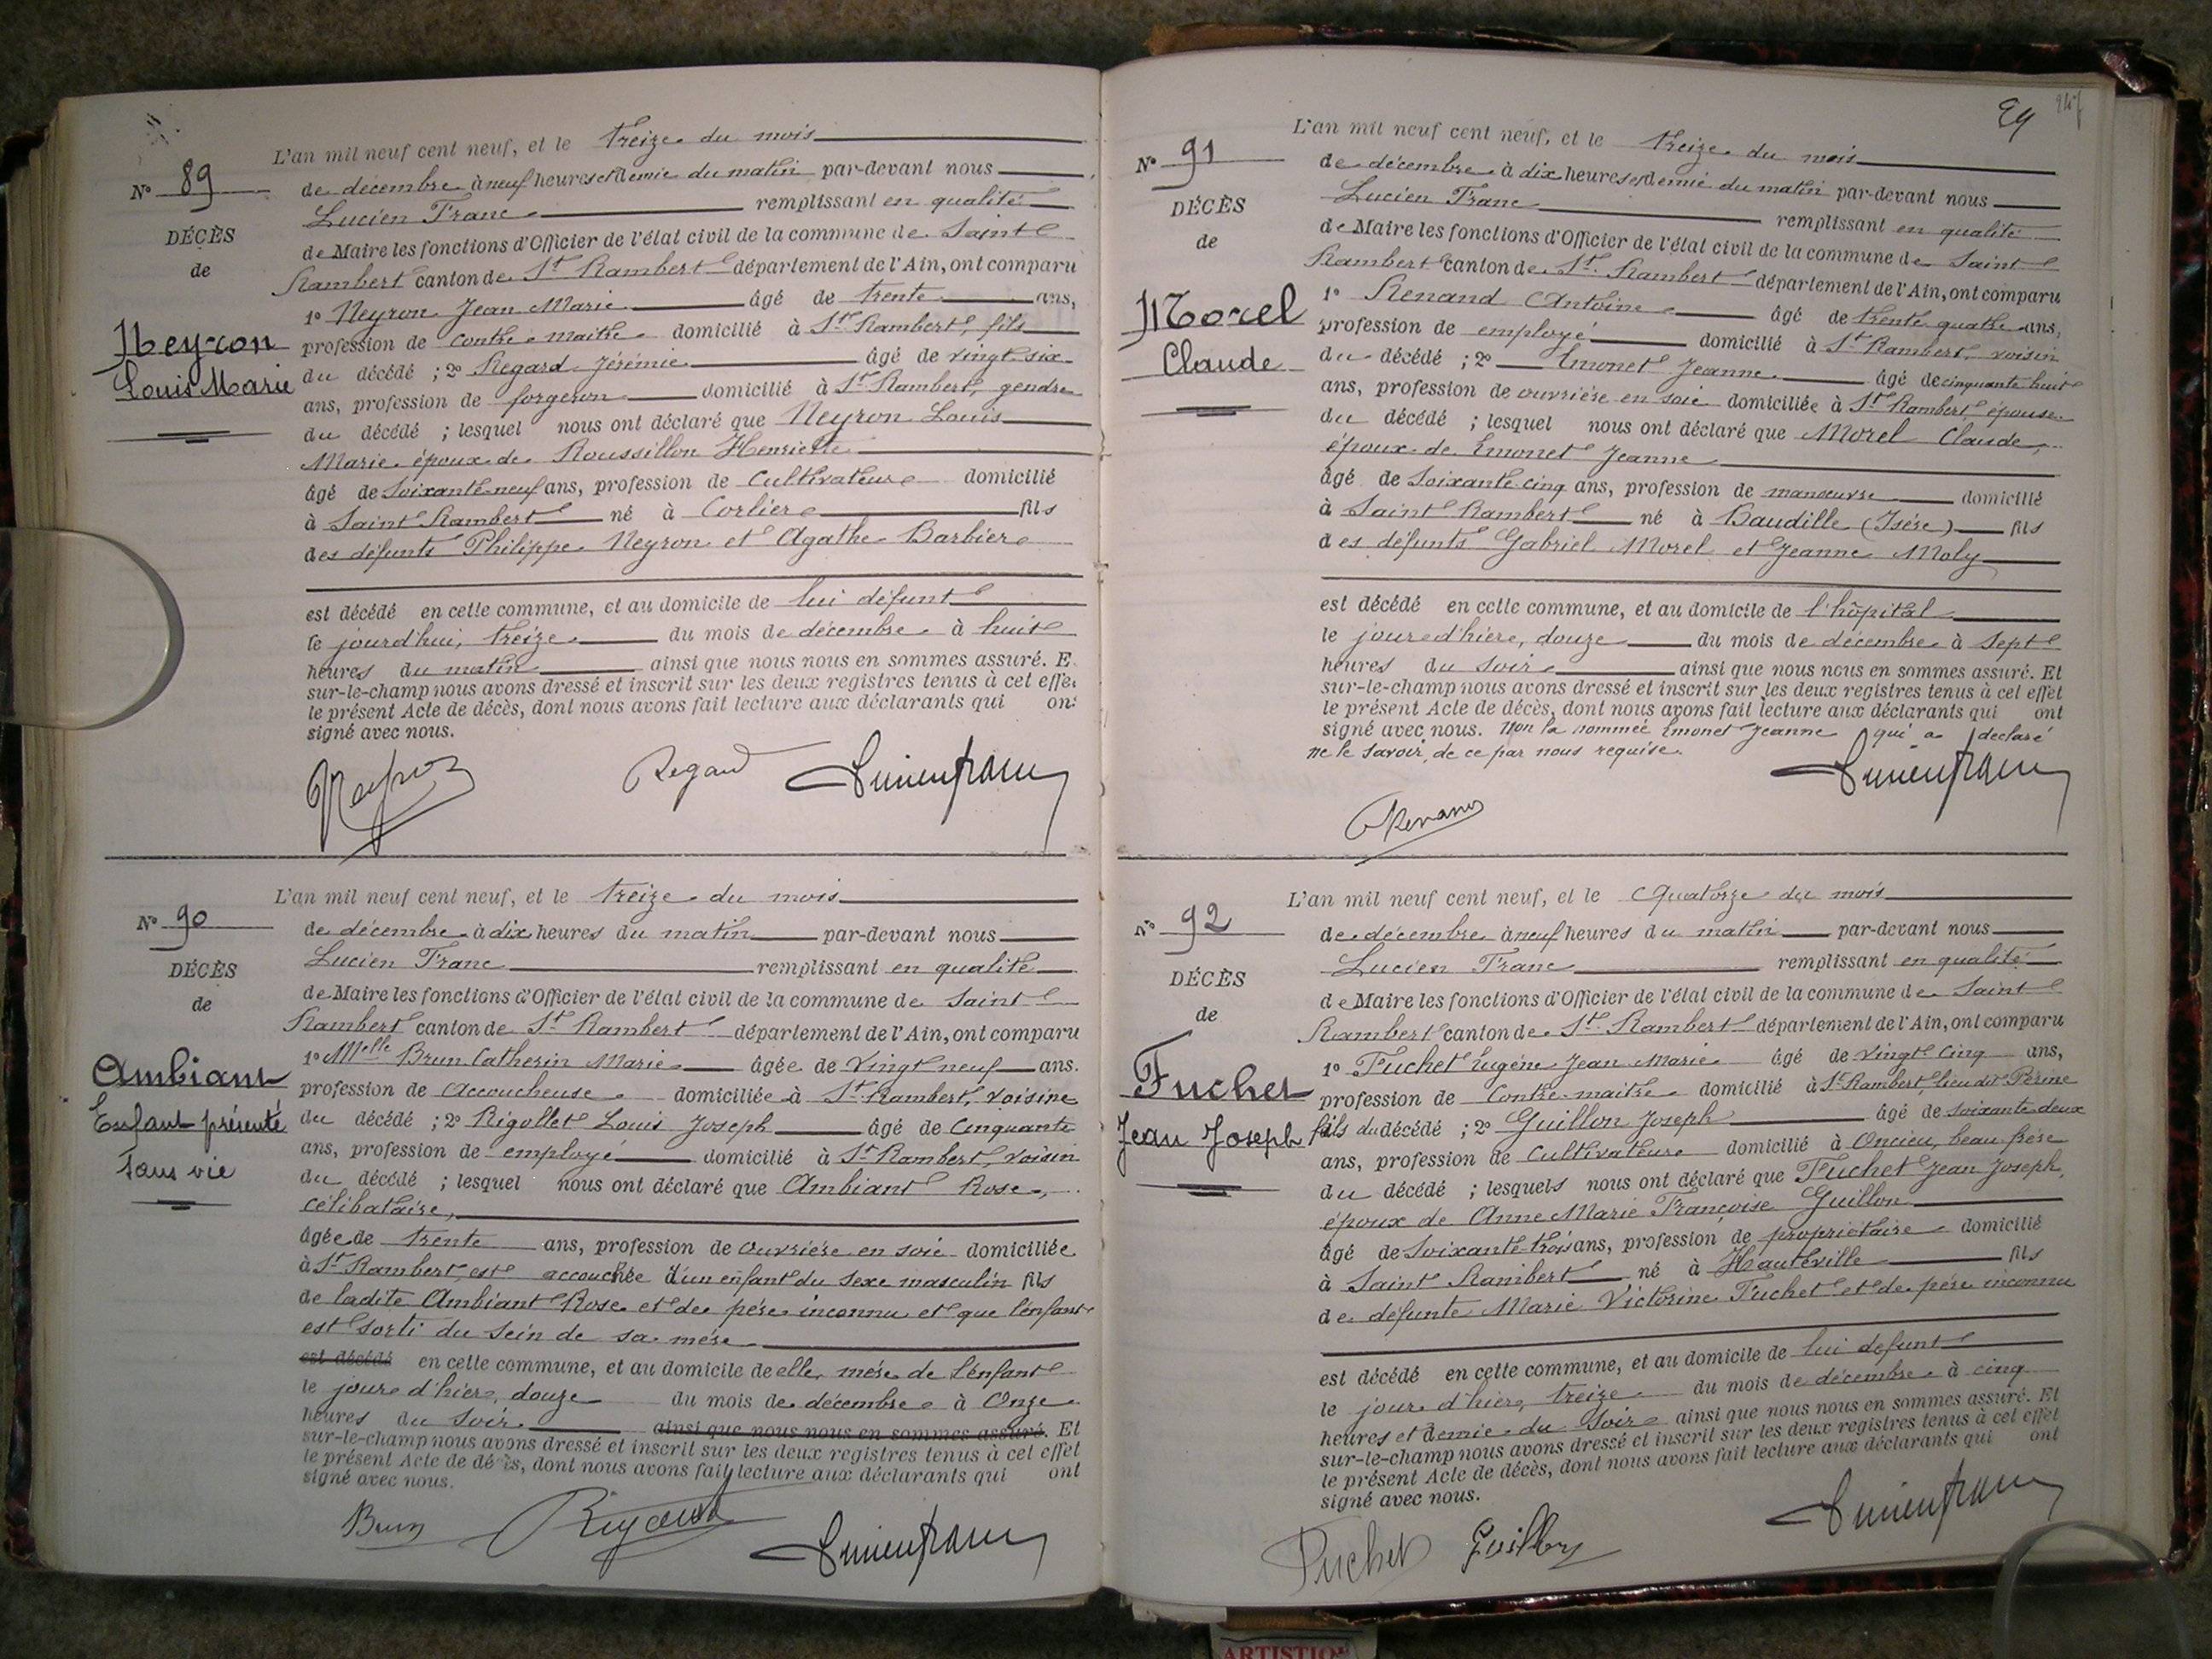 L'an mil neuf cent neuf, et le treize du mois
N° 89
de décembre à neuf heures et demie du matin par-devant nous
Lucien Franc remplissant en qualité
DÉCÈS
de Maire les fonctions d'Officier de l'état civil de la commune de Saint
de
Rambert canton de St Rambert département de l'Ain, ont comparu
1° Neyron Jean Marie âgé de trente ans,
Neyron
profession de contre-maître domicilié à St Rambert, fils
Louis Marie
du décédé ; 2° Regard Jérémie âgé de vingt-six
ans, profession de forgeron domicilié à St Rambert, gendre
du décédé ; lesquel nous ont déclaré que Neyron Louis
Marie époux de Roussillon Henriette
âgé de Soixante-neuf ans, profession de Cultivateur domicilié
à Saint Rambert né à Corlier fils
des défunts Philippe Neyron et Agathe Barbier
est décédé en cette commune, et au domicile de lui défunt
le jourd'hui, treize du mois de décembre à huit
heures du matin ainsi que nous nous en sommes assuré. E
sur-le-champ nous avons dressé et inscrit sur les deux registres tenus à cet effet
le présent Acte de décès, dont nous avons fait lecture aux déclarants qui ont
signé avec nous.
Neyron Regard Lucien franc
L'an mil neuf cent neuf, et le treize du mois
N° 90
de décembre à dix heures du matin par-devant nous
Lucien Franc remplissant en qualité
DÉCÈS
de Maire les fonctions d'Officier de l'état civil de la commune de Saint
de
Rambert canton de St Rambert département de l'Ain, ont comparu
1° Melle Brun Catherin Marie âgée de Vingt neuf ans.
Ambiant
profession de Accoucheuse domiciliée à St Rambert, voisine
Enfant présenté
du décédé ; 2° Rigollet Louis Joseph âgé de Cinquante
ans, profession de employé domicilié à St Rambert, voisin
sans vie
du décédé ; lesquel nous ont déclaré que Ambiant Rose,
célibataire,
âgée de trente ans, profession de Ouvrière en soie domiciliée
à St Rambert, est accouchée d'un enfant du sexe masculin fils
de ladite Ambiant Rose et de père inconnu et que l'enfant
est sorti du sein de sa mère
est décédé en cette commune, et au domicile de elle, mère de l'enfant
le jour d'hier, douze du mois de décembre à Onze
heures du soir ainsi que nous nous en sommes assuré. Et
sur-le-champ nous avons dressé et inscrit sur les deux registres tenus à cet effet
le présent Acte de décès, dont nous avons fait lecture aux déclarants qui ont
signé avec nous.
Brun Lucien franc
89
L'an mil neuf cent neuf, et le treize du mois
N° 91
de décembre à dix heures et demie du matin par-devant nous
Lucien Franc remplissant en qualité
DÉCÈS
de Maire les fonctions d'Officier de l'état civil de la commune de Saint
de
Rambert canton de St Rambert département de l'Ain, ont comparu
1° Renand Antoine âgé de trente quatre ans,
Morel
profession de employé domicilié à St Rambert, voisin
Claude
du décédé ; 2° Emonet Jeanne âgé de cinquante huit
ans, profession de ouvrière en soie domiciliée à St Rambert épouse
du décédé ; lesquel nous ont déclaré que Morel Claude,
époux de Emonet Jeanne
âgé de Soixante-cinq ans, profession de manœuvre domicilié
à Saint Rambert né à Baudille (Isère) fils
des défunts Gabriel Morel et Jeanne Moly
est décédé en cette commune, et au domicile de l'hôpital
le jour d'hier, douze du mois de décembre à Sept
heures du soir ainsi que nous nous en sommes assuré. Et
sur-le-champ nous avons dressé et inscrit sur les deux registres tenus à cet effet
le présent Acte de décès, dont nous avons fait lecture aux déclarants qui ont
signé avec nous. Non la nommée Emonet Jeanne qui a déclaré
ne le savoir, de ce par nous requise.
Lucien franc
Renand
L'an mil neuf cent neuf, et le Quatorze du mois
N° 92
de décembre à neuf heures du matin par-devant nous
Lucien Franc remplissant en qualité
DÉCÈS
de Maire les fonctions d'Officier de l'état civil de la commune de Saint
de
Rambert canton de St Rambert département de l'Ain, ont comparu
1° Fuchet Eugène Jean Marie âgé de vingt cinq ans,
Fuchet
profession de Contre-maître domicilié à St Rambert, lieu dit Périne
Jean Joseph
fils du décédé ; 2° Guillon Joseph âgé de soixante deux
ans, profession de Cultivateur domicilié à Oncieu, beau frère
du décédé ; lesquels nous ont déclaré que Fuchet Jean Joseph,
époux de Anne Marie Françoise Guillon
âgé de Soixante-trois ans, profession de propriétaire domicilié
à Saint Rambert né à Hauteville fils
de défunte Marie Victorine Fuchet et de père inconnu
est décédé en cette commune, et au domicile de lui défunt
le jour d'hier, treize du mois de décembre à cinq
heures et demie du soir ainsi que nous nous en sommes assuré. Et
sur-le-champ nous avons dressé et inscrit sur les deux registres tenus à cet effet
le présent Acte de décès, dont nous avons fait lecture aux déclarants qui ont
signé avec nous.
Lucien franc
Fuchet Guillon
ARTISTIQ